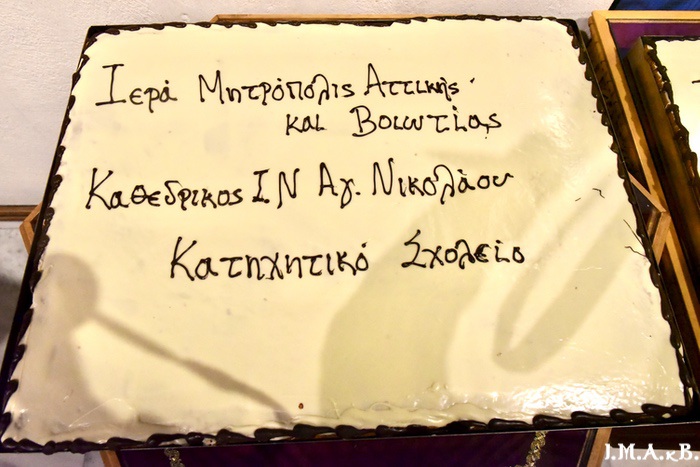 Ιερά Μητρόπολις Αττικής
και Βοιωτίας
Καθεδρικος Ι Ν Αγ. Νικολάου
Κατηχητικό Σχολείο
Ι.Μ.Α.κ Β.